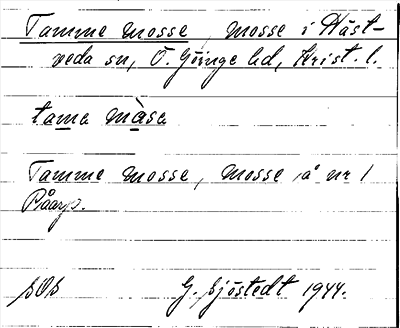 Tamme mosse, mosse i Häst-
veda sn, Ö. Göinge hd, Krist. l.
tama màsa
Tamme mosse, mosse å nr 1
Påarp.
G. Sjöstedt 1944.